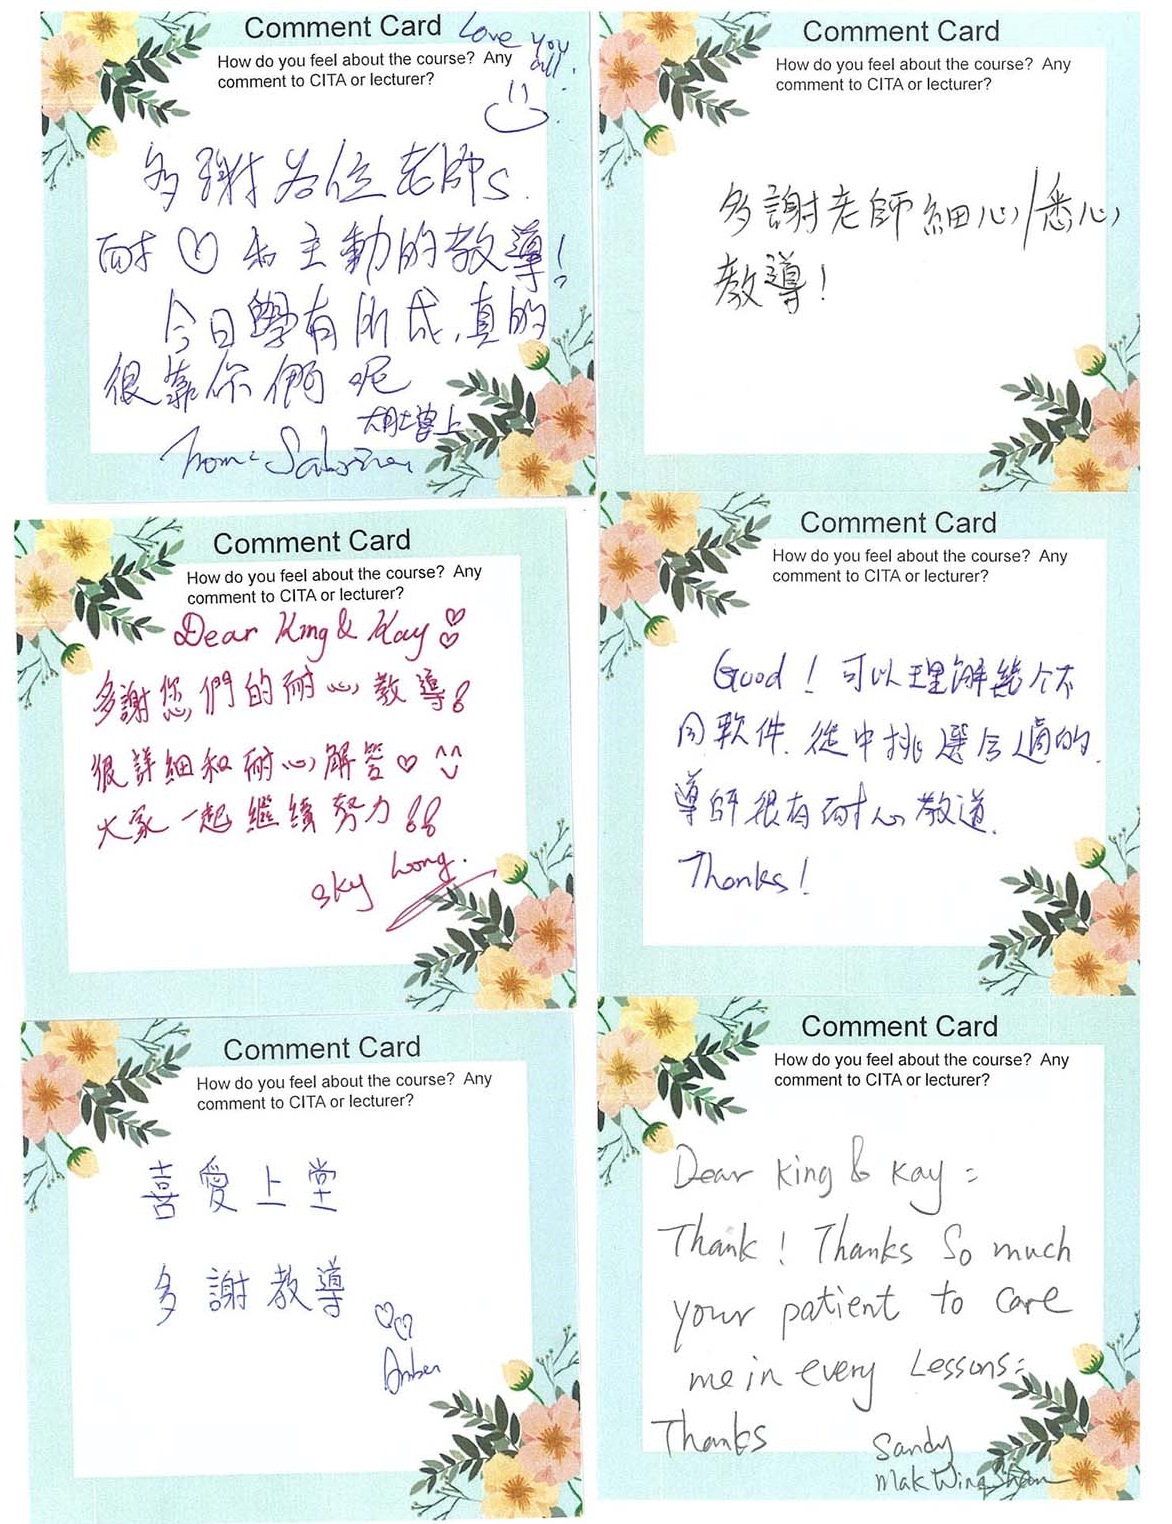 Comment Card
Love you all!
How do you feel about the course? Any
comment to CITA or lecturer?
多謝各位老師s.
耐♡和主動的教導!
今日學有所成,真的
很靠你們呢
From: Sabrina
Comment Card
How do you feel about the course? Any
comment to CITA or lecturer?
多謝老師細心/悉心
教導!
Comment Card
How do you feel about the course? Any
comment to CITA or lecturer?
Dear King & Kay ♡♡
多謝您們的耐心教導!
很詳細和耐心解答♡ ^^
大家一起繼續努力!!
Sky Wong.
Comment Card
How do you feel about the course? Any
comment to CITA or lecturer?
Good! 可以理解幾个不
同軟件. 從中挑選合適的.
導師很有耐心教道.
Thanks!
Comment Card
How do you feel about the course? Any
comment to CITA or lecturer?
喜愛上堂
多謝教導
♡♡
Amber
Comment Card
How do you feel about the course? Any
comment to CITA or lecturer?
Dear King & Kay:
Thank! Thanks so much
your patient to care
me in every Lessons:
Thanks
Sandy
Mak Wing Shan